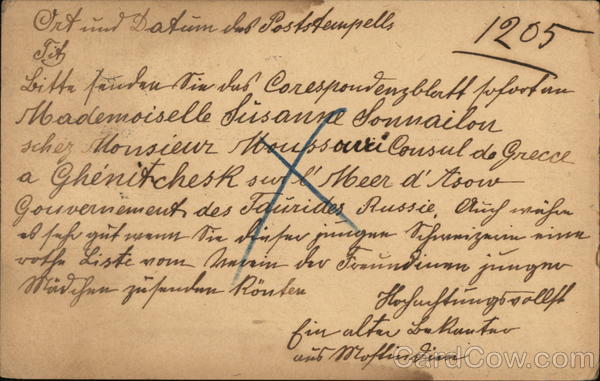 Ort und Datum des Poststempells
1205
Tit
Bitte senden Sie das Corespondenzblatt sofort an
Mademoiselle Süsanne Sonnailon
schez Monsieur Moussuri Consul de Grecce
a Ghénitchesk sur l'Meer d'Asow
Gouvernement des Taurides Russie. Auch währe
es sehr gut wenn Sie dieser jungen Schweizerin eine
rothe Liste vom Verein der Freundinen junger
Mädchen züsenden könten
Hochachtungsvollst
Ein alter Bekanter
aus
CardCow.com